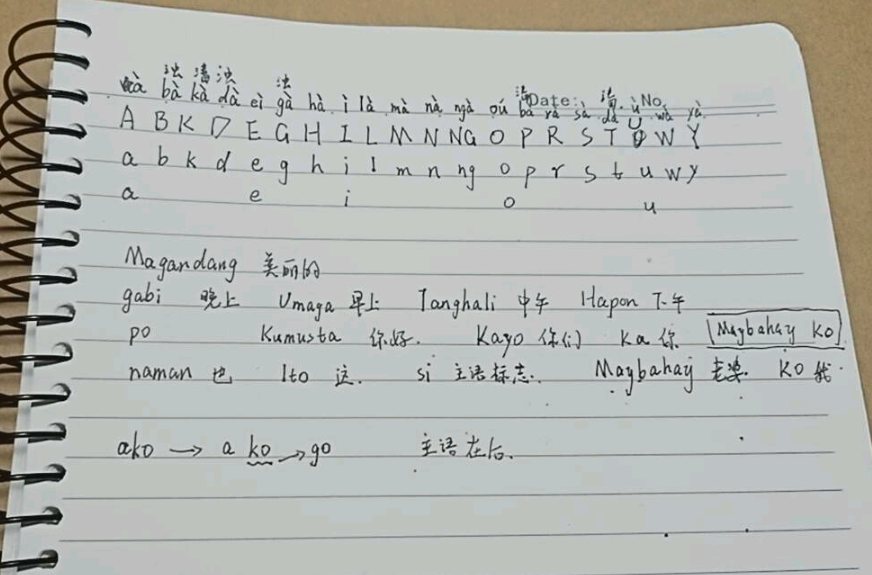 浊 清 浊 浊 清 清
à bà kà dà eì gà hà ì là mà nà ngà oú bà rà sà dà ù wà yà
Date: No.
A B K D E G H I L M N NG O P R S T U W Y
a b k d e g h i l m n ng o p r s t u w y
a e i o u
Magandang 美丽的
gabi 晚上 Umaga 早上 Tanghali 中午 Hapon 下午
po Kumusta 你好. Kayo 你们 Ka 你 Maybahay Ko
naman 也 Ito 这. si 主语标志. Maybahay 老婆. Ko 我.
ako → a ko → go 主语在后.